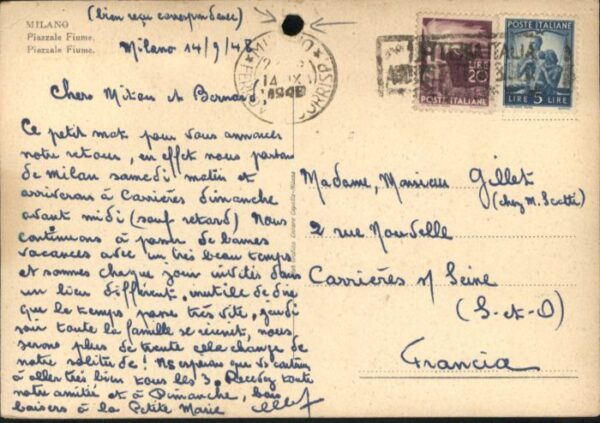 MILANO
Piazzale Fiume.
Piazzale Fiume.
(bien reçu correspondence)
Milano 14/9/48
LIRE
20
POSTE ITALIANE
POSTE ITALIANE
LIRE 5 LIRE
Chers et Bernard,
Ce petit mot pour vous annoncer
notre retour, en effet nous partons
de Milan samedi matin et
arriverons à Carrières dimanche
avant midi (sauf retard) Nous
continuons à passer de bonnes
vacances avec un très beau temps
et sommes chaque jour invités dans
un lieu différent, inutile de dire
que le temps passe très vite, jeudi
soir toute la famille se réunit, nous
serons plus de trente cela change de
notre solitude! Ns espérons que vs continuez
à aller très bien tous les 3. Recevez toute
notre amitié et à Dimanche, bons
baisers à la Petite Marie
Madame, Monsieur Gillet
(chez M. Scatti)
2 rue Nouvelle
Carrières s/ Seine
(S-et-O)
Francia